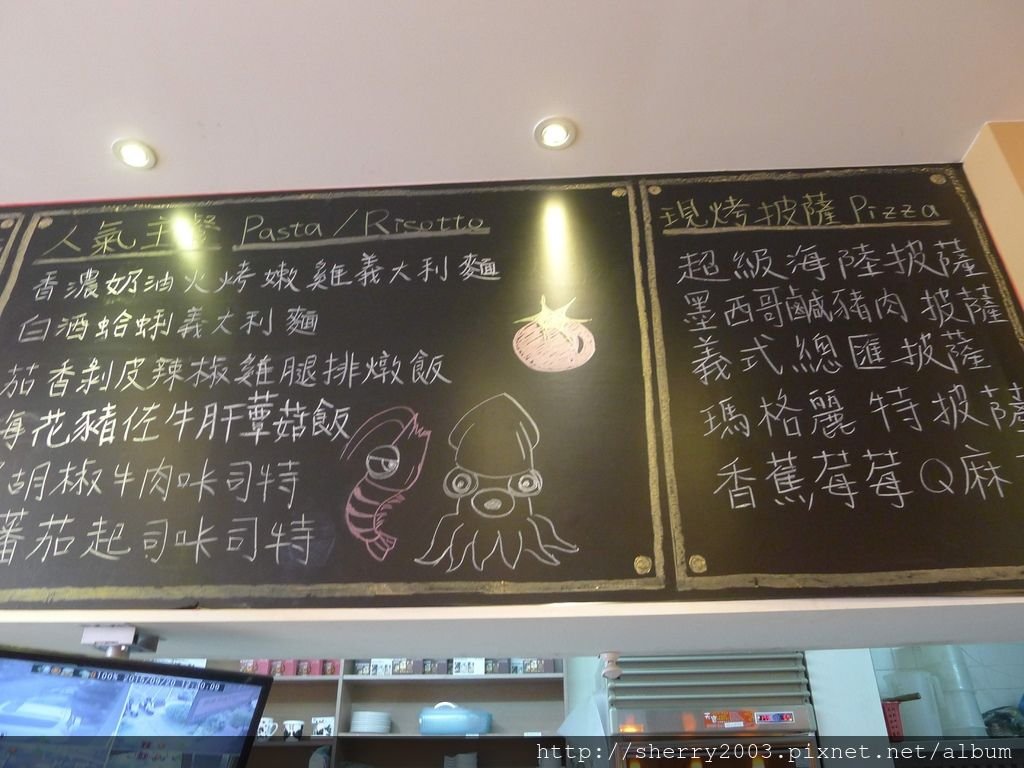 人氣主餐 Pasta/Risotto
香濃奶油火烤嫩雞義大利麵
白酒蛤蜊義大利麵
茄香剝皮辣椒雞腿排燉飯
海花豬佐牛肝蕈菇飯
胡椒牛肉咔司特
蕃茄起司咔司特
現烤披薩 Pizza
超級海陸披薩
墨西哥鹹豬肉披薩
義式總匯披薩
瑪格麗特披薩
香蕉莓莓Q麻
http://sherry2003.pixnet.net/album